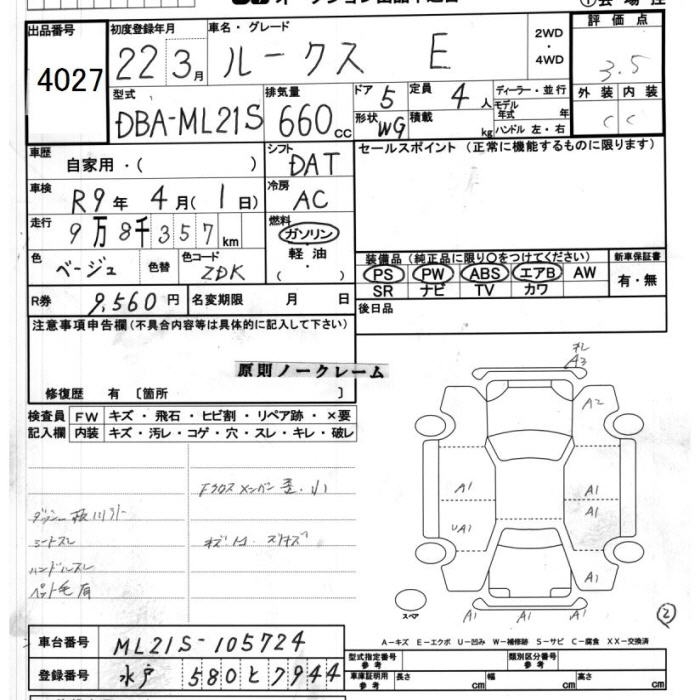 出品番号
4027
初度登録年月
22 3月
車名・グレード
ルークス E
2WD
・
4WD
評価点
3.5
外装 内装
C C
型式
DBA-ML21S
排気量
660cc
ドア 5
形状 WG
定員 4人
積載 kg
ディーラー・並行
モデル年式 年
ハンドル 左・右
車歴
自家用・( )
シフト
DAT
セールスポイント (正常に機能するものに限ります)
車検
R9年 4月( 1日)
冷房
AC
走行
9万8千357km
燃料
ガソリン
軽油
( )
色
ベージュ
色替
色コード
ZDK
装備品 (純正品に限り○をつけてください)
新車保証書
PS PW ABS エアB AW
有・無
SR ナビ TV カワ
R券 9,560円
名変期限 月 日
後日品
注意事項申告欄(不具合内容等は具体的に記入して下さい)
原則ノークレーム
修復歴 有 〔箇所 〕
検査員
記入欄
FW キズ・飛石・ヒビ割・リペア跡・×要
内装 キズ・汚レ・コゲ・穴・スレ・キレ・破レ
シートスレ
ハンドルスレ
ペット毛有
A3
A2
A1
A1
A1
UA1
A1
A1
A1
A1
A1
スペア
2
A-キズ E-エクボ U-凹み W-補修跡 S-サビ C-腐食 XX-交換済
車台番号
ML21S-105724
登録番号
水戸 580 と 7944
型式指定番号
参考
類別区分番号
参考
車庫証明用
参考
長さ cm
幅 cm
高さ cm